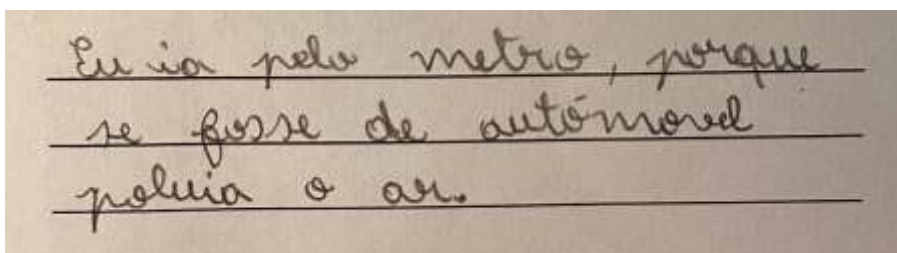 Eu ia pelo metro, porque
se fosse de autómovel
poluia o ar.